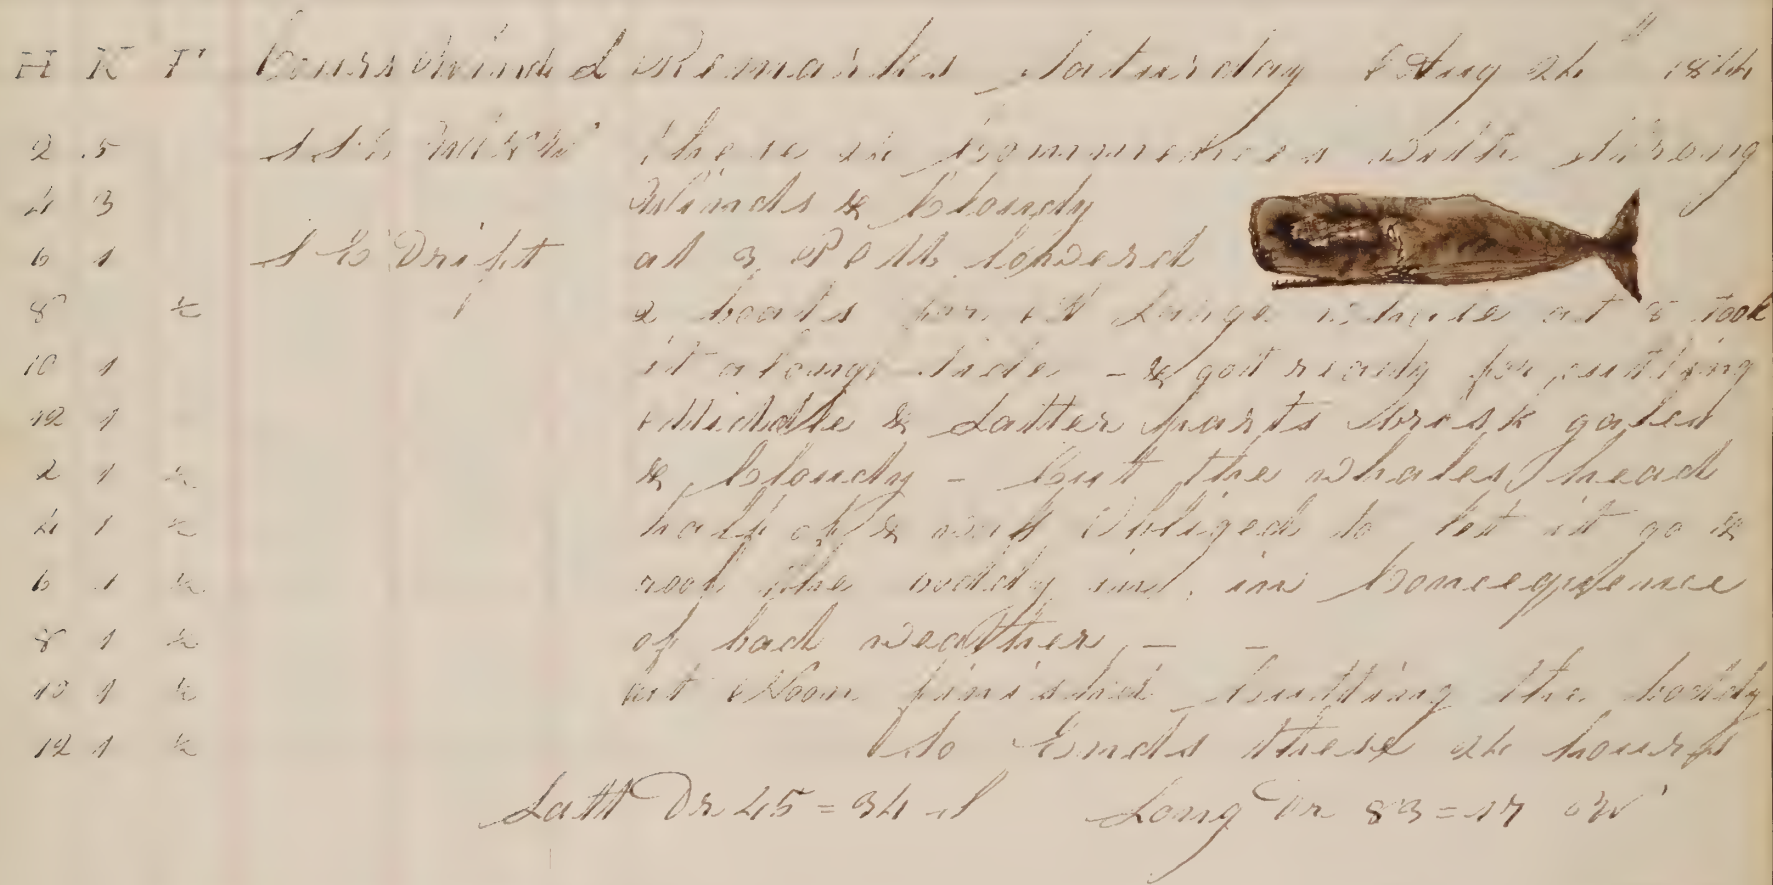 H K F Cours Winds & Remarks Saturday Aug 24" 1844
2 5 S S E thare 24 Commences with strong
4 3 Winds & Cloudy
6 1 S E Drift at 3 P M lowerd
8 ½ 2 boats for A Large whale at 5 took
10 1 it along side - & got ready for cutting
12 1 Middle & Latter parts brisk gales
2 1 ½ & Cloudy - Cut the whales head
4 1 ½ half of & was Obliged to let it go &
6 1 ½ the boddy in, in Concequence
8 1 ½ of bad weather - -
10 1 ½ at Noon finished Cutting the boddy
12 1 ½ So Ends these 24 hours
Latt Dr 45=34 S Long Dr 83=17 W